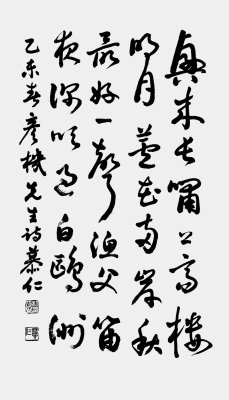 兴来长啸上高楼
明月芦花两岸秋
最好一声渔父笛
夜深吹过白鸥洲
乙未春彦机先生诗慕仁